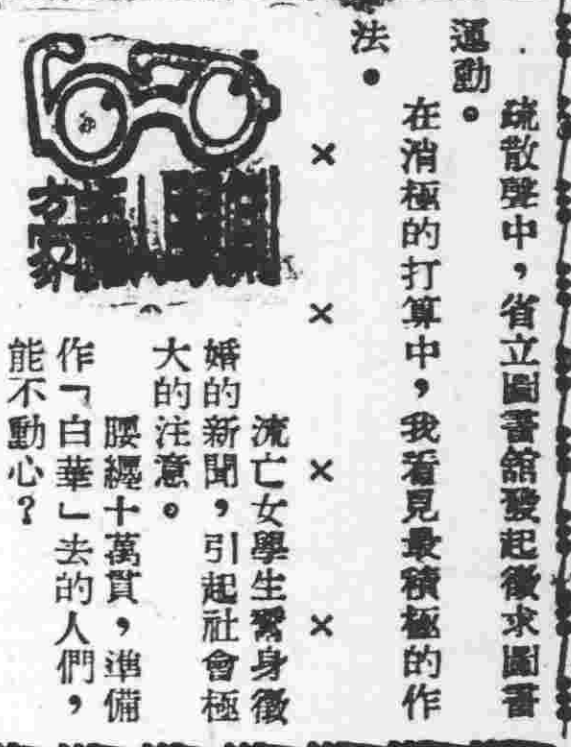 疏散聲中，省立圖書館發起徵求圖書
運動。
在消極的打算中，我看見最積極的作
法。
× × × ×
流亡女學生鬻身徵
婚的新聞，引起社會極
大的注意。
腰纏十萬貫，準備
作「白華」去的人們，
能不動心？